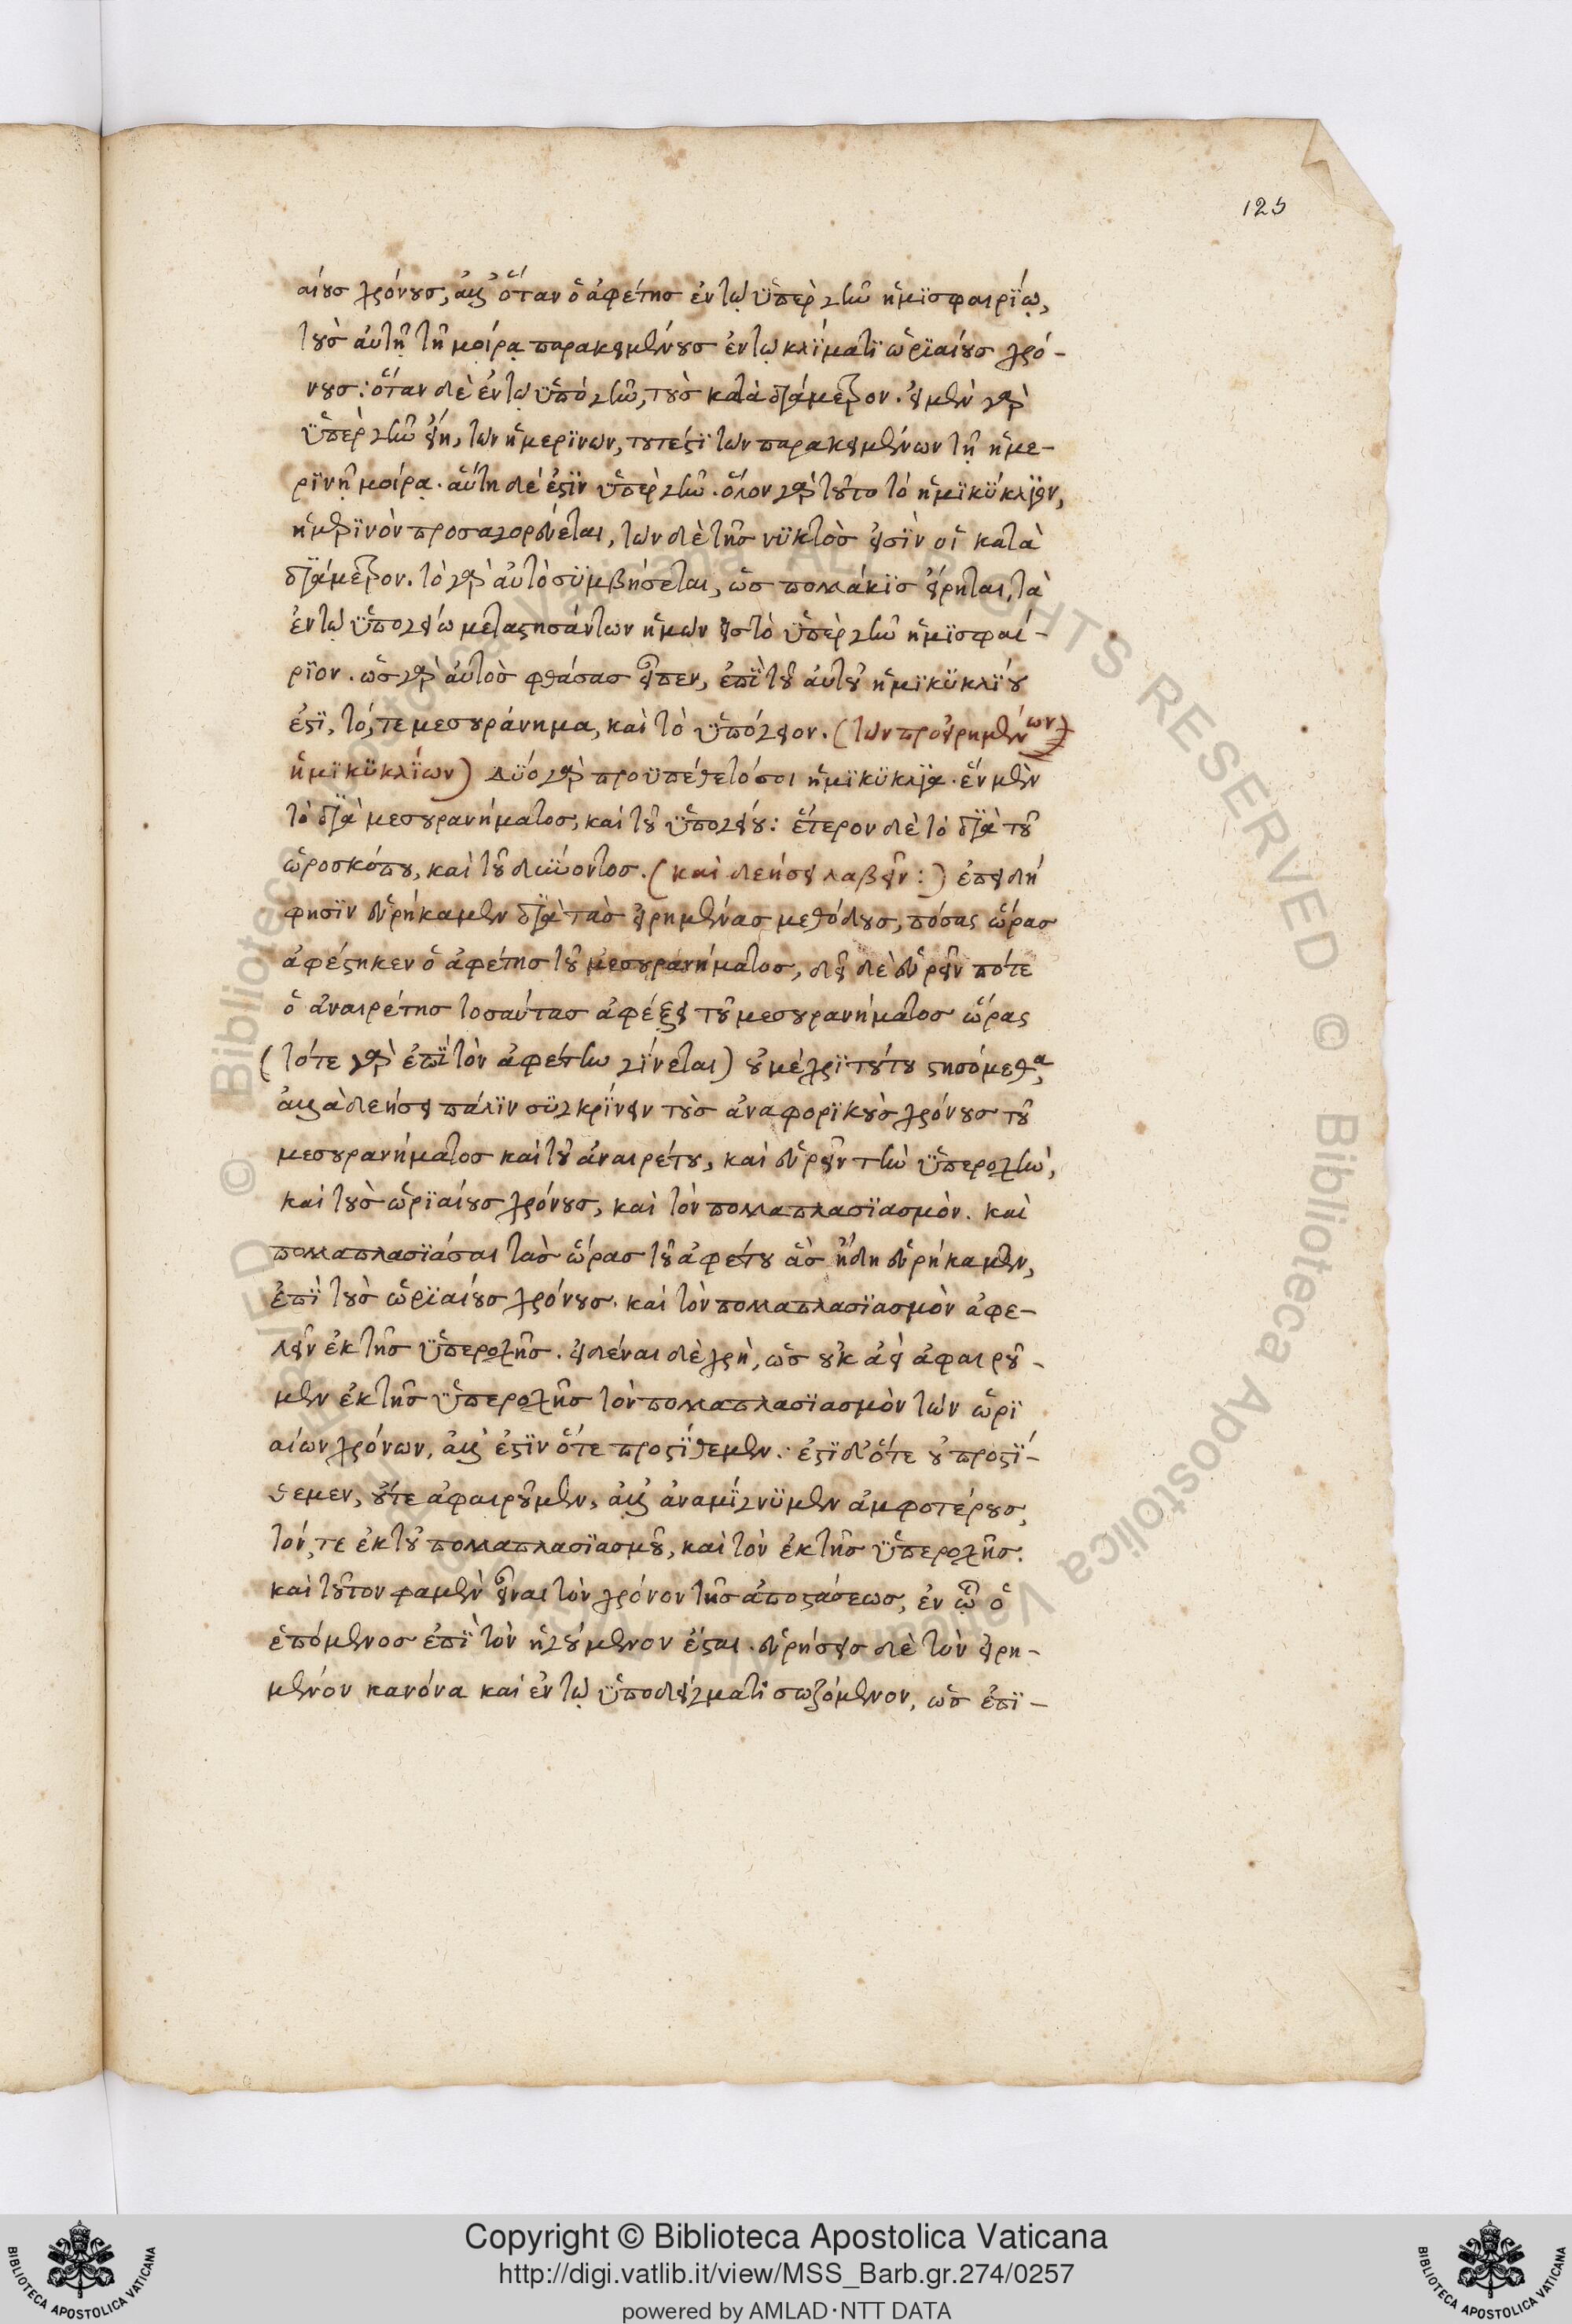 125
αίους χρόνους, ἀλλ' ὅταν ὁ ἀφέτης ἐν τῷ ὑπὲρ γῆν ἡμισφαιρίῳ,
τοὺς αὐτῇ τῇ μοίρᾳ παρακειμένους ἐν τῷ κλίματι ὡριαίους χρό-
νους: ὅταν δὲ ἐν τῷ ὑπὸ γῆν, τοὺς κατὰ διάμετρον. εἰ μὲν γὰρ
ὑπὲρ γῆν εἴη, τῶν ἡμερινῶν, τουτέστι τῶν παρακειμένων τῇ ἡμε-
ρινῇ μοίρᾳ. αὕτη δέ ἐστιν ὑπὲρ γῆν. ὅλον γὰρ τοῦτο τὸ ἡμικύκλιον,
ἡμερινὸν προσαγορεύεται, τῶν δὲ τῆς νυκτὸς εἰσὶν οἱ κατὰ
διάμετρον. τὸ γὰρ αὐτὸ συμβήσεται, ὡς πολλάκις εἴρηται, τὰ
ἐν τῷ ὑπογείῳ μεταστησάντων ἡμῶν εἰς τὸ ὑπὲρ γῆν ἡμισφαί-
ριον. ὡς γὰρ αὐτὸς φθάσας εἶπεν, ἐπὶ τοῦ αὐτοῦ ἡμικυκλίου
ἐστί, τό, τε μεσουράνημα, καὶ τὸ ὑπόγειον. (τῶν προειρημένων
ἡμικυκλίων) δύο γὰρ προϋπέθετο σοι ἡμικύκλια. ἓν μὲν
τὸ διὰ μεσουρανήματος, καὶ τοῦ ὑπογείου: ἕτερον δὲ τὸ διὰ τοῦ
ὡροσκόπου, καὶ τοῦ δύνοντος. (καὶ δεήσει λαβεῖν:) ἐπειδή
φησιν εὑρήκαμεν διὰ τὰς εἰρημένας μεθόδους, πόσας ὥρας
ἀφέστηκεν ὁ ἀφέτης τοῦ μεσουρανήματος, δεῖ δὲ εὑρεῖν πότε
ὁ ἀναιρέτης τοσαύτας ἀφέξει τοῦ μεσουρανήματος ὥρας
(τότε γὰρ ἐπὶ τὸν ἀφέτην γίνεται) οὐ μέχρι τούτου στησόμεθα,
ἀλλὰ δεήσει πάλιν συγκρίνειν τοὺς ἀναφορικοὺς χρόνους τοῦ
μεσουρανήματος καὶ τοῦ ἀναιρέτου, καὶ εὑρεῖν τὴν ὑπεροχὴν,
καὶ τοὺς ὡριαίους χρόνους, καὶ τὸν πολλαπλασιασμὸν. καὶ
πολλαπλασιάσαι τὰς ὥρας τοῦ ἀφέτου ἃς ἤδη εὑρήκαμεν,
ἐπὶ τοὺς ὡριαίους χρόνους. καὶ τὸν πολλαπλασιασμὸν ἀφε-
λεῖν ἐκ τῆς ὑπεροχῆς. εἰδέναι δὲ χρὴ, ὡς οὐκ ἀεὶ ἀφαιροῦ-
μεν ἐκ τῆς ὑπεροχῆς τὸν πολλαπλασιασμὸν τῶν ὡρι
αίων χρόνων, ἀλλ' ἔστιν ὅτε προστίθεμεν. ἔστι δ' ὅτε οὐ προστί-
θεμεν, οὔτε ἀφαιροῦμεν, ἀλλ' ἀναμίγνυμεν ἀμφοτέρους,
τόν, τε ἐκ τοῦ πολλαπλασιασμοῦ, καὶ τὸν ἐκ τῆς ὑπεροχῆς.
καὶ τοῦτον φαμὲν εἶναι τὸν χρόνον τῆς ἀποστάσεως, ἐν ᾧ ὁ
ἑπόμενος ἐπὶ τὸν ἡγούμενον ἔσται. εὑρήσεις δὲ τὸν εἰρη-
μένον κανόνα καὶ ἐν τῷ ὑποδείγματι σωζόμενον, ὡς ἐπι-
Copyright © Biblioteca Apostolica Vaticana
http://digi.vatlib.it/view/MSS_Barb.gr.274/0257
powered by AMLAD·NTT DATA